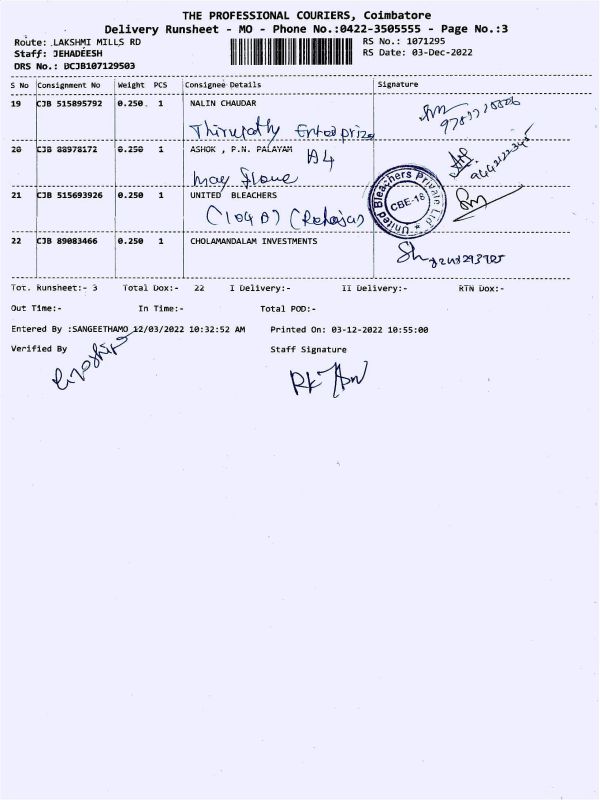 THE PROFESSIONAL COURIERS, Coimbatore
Delivery Runsheet - MO - Phone No.:0422-3505555 - Page No.:3
Route: LAKSHMI MILLS RD RS No.: 1071295
Staff: JEHADEESH RS Date: 03-Dec-2022
DRS No.: DCJB107129503
S No Consignment No Weight PCS Consignee Details Signature
19 CJB 515895792 0.250 1 NALIN CHAUDAR
Thirupathy Enterprize
20 CJB 88978172 0.250 1 ASHOK , P.N. PALAYAM A4
21 CJB 515693926 0.250 1 UNITED BLEACHERS
(104 A)
United Bleachers Private Ltd
CBE-18
22 CJB 89083466 0.250 1 CHOLAMANDALAM INVESTMENTS
Tot. Runsheet:- 3 Total Dox:- 22 I Delivery:- II Delivery:- RTN Dox:-
Out Time:- In Time:- Total POD:-
Entered By :SANGEETHAMO 12/03/2022 10:32:52 AM Printed On: 03-12-2022 10:55:00
Verified By Staff Signature